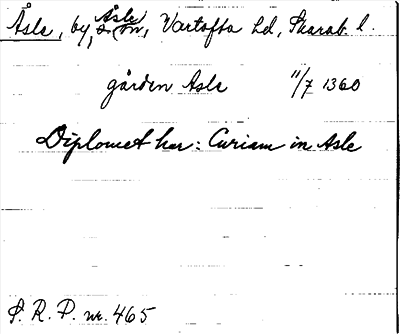 Åsle, by, Åsle sn, Vartofta hd, Skarab. l.
gården Asle 11/7 1360
Diplomet har: Curiam in Asle
S. R. P. nr. 465